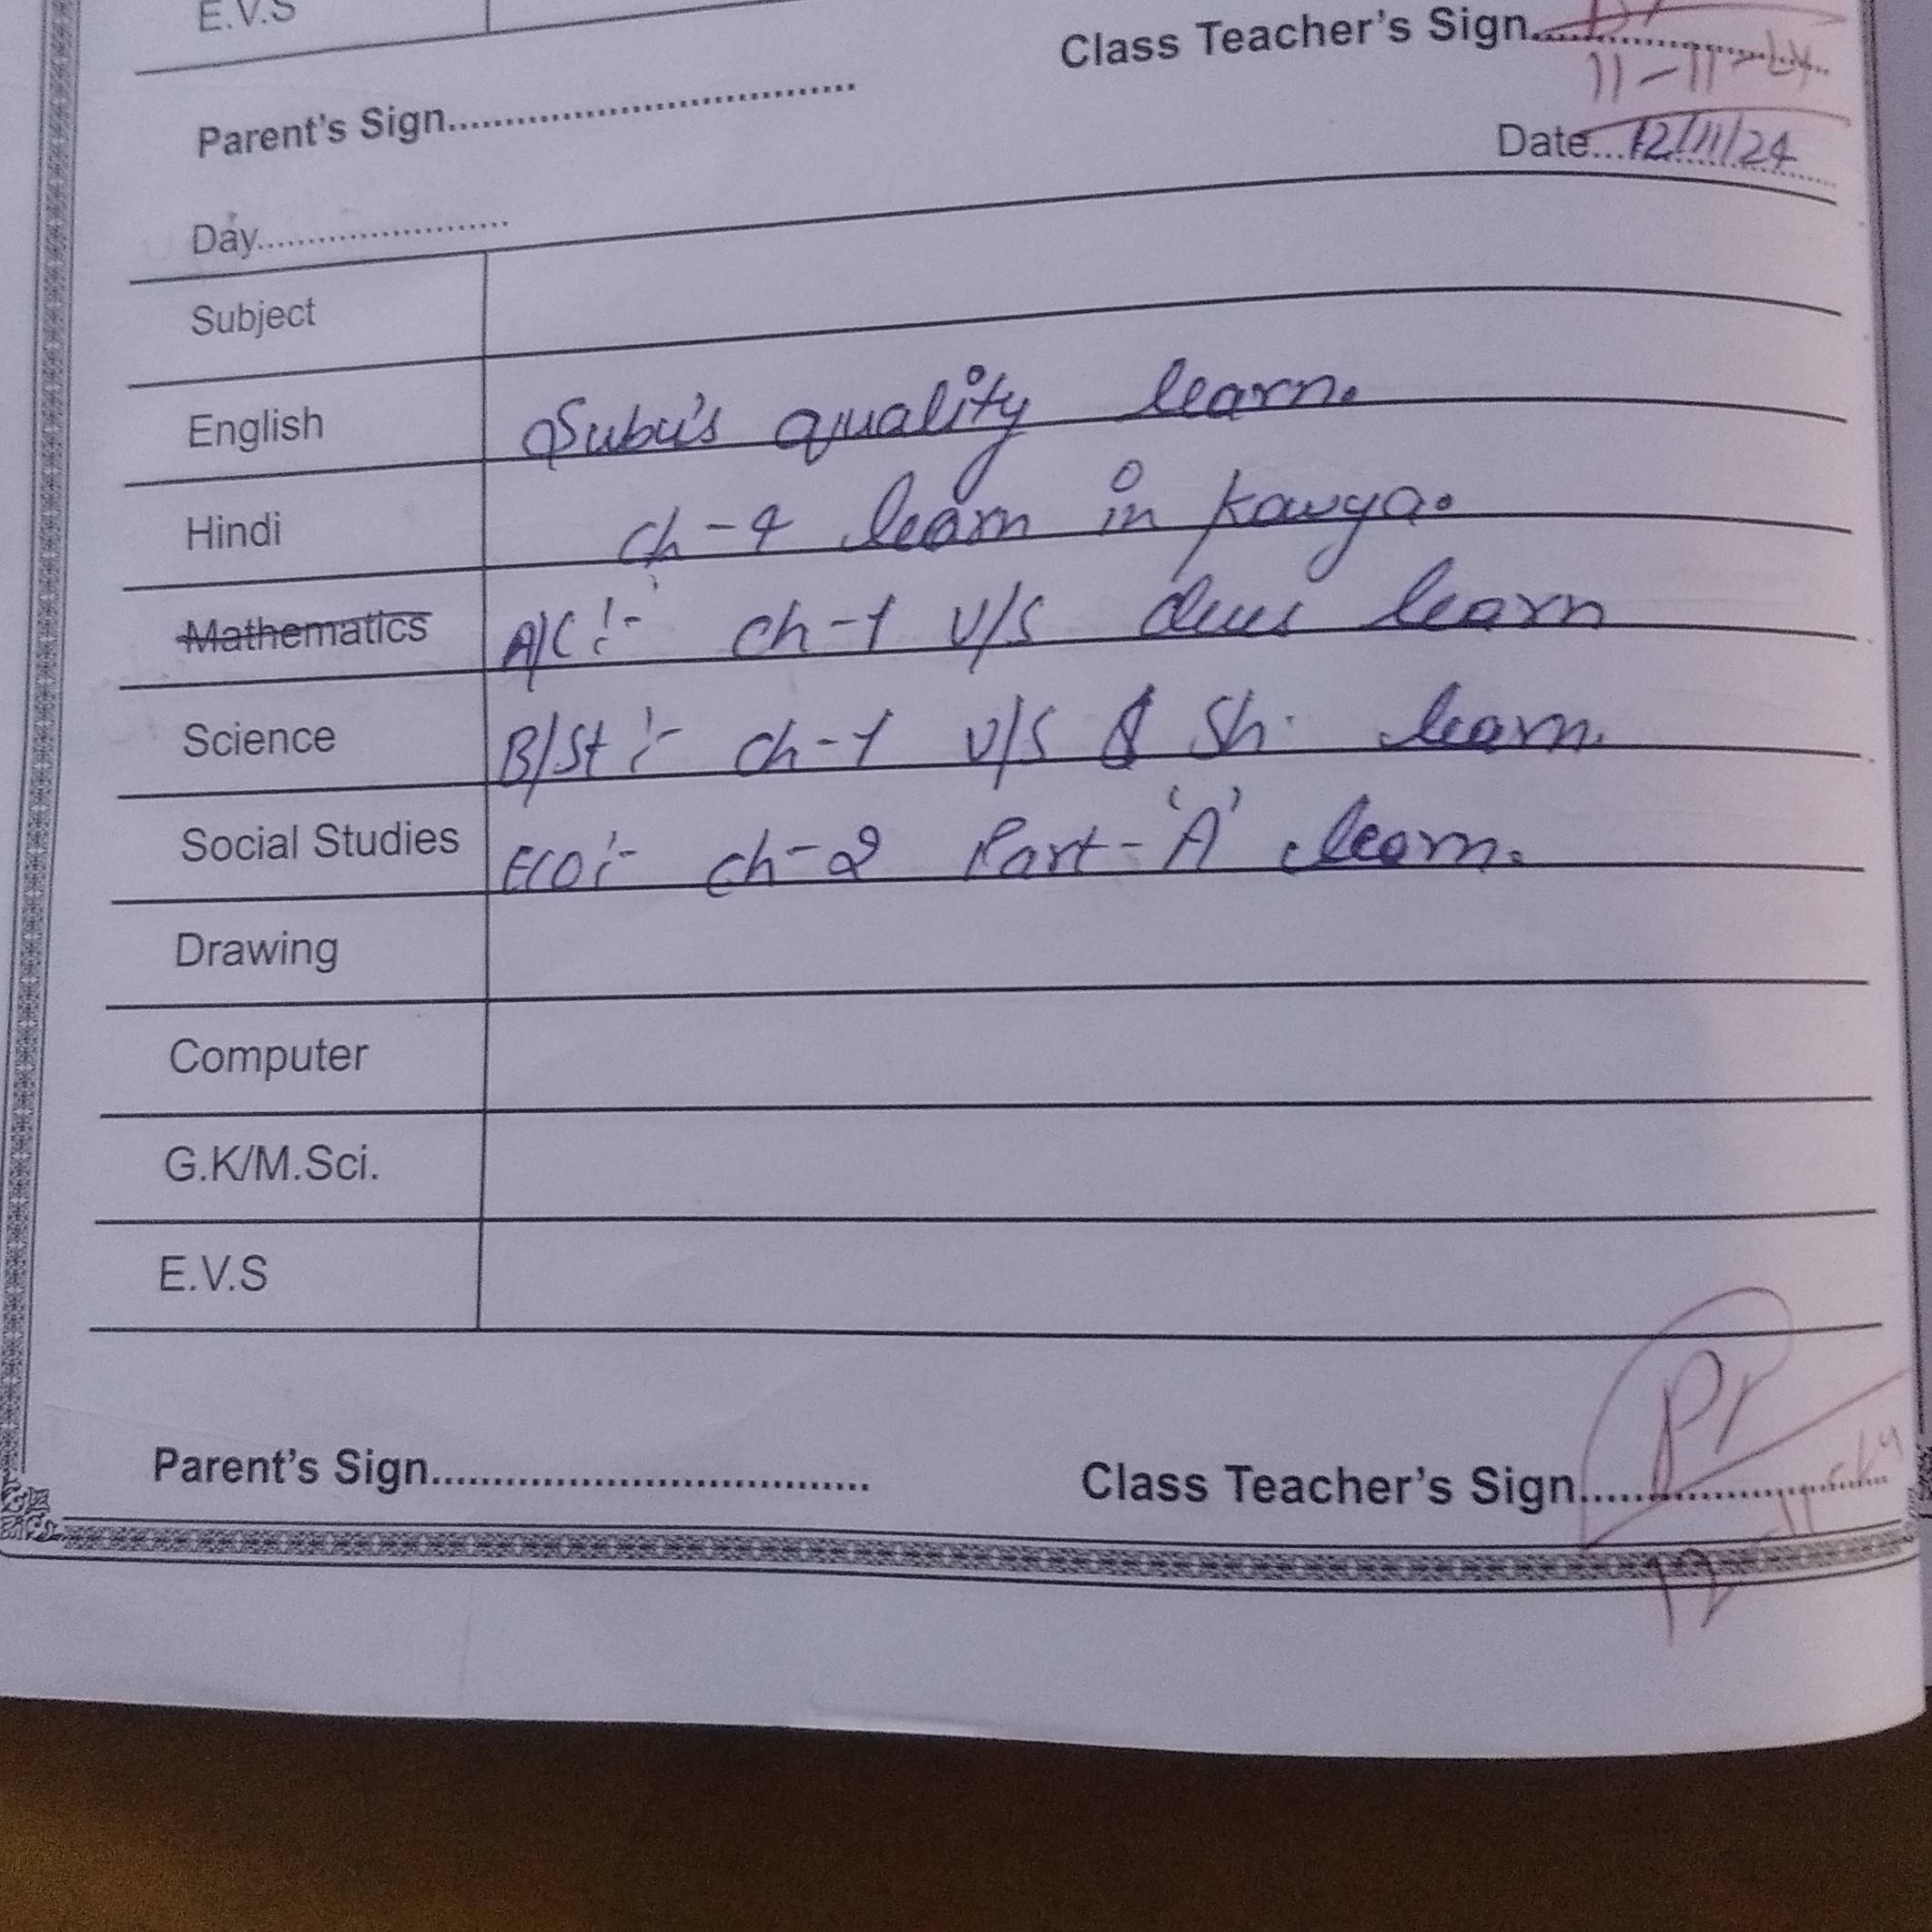 E.V.S
Class Teacher's Sign..............................
11-11-24
Parent's Sign....................................
Date...12/11/24
Day........................
Subject
English Subu's quality learn.
Hindi ch-4 learn in Kavya.
Mathematics A/C :- ch-1 V/S learn
Science B/St :- ch-1 V/S & Sh. learn.
Social Studies ECO :- ch-2 Part-'A' learn.
Drawing
Computer
G.K/M.Sci.
E.V.S
Parent's Sign....................................
Class Teacher's Sign..............................
Pr
12-11-24